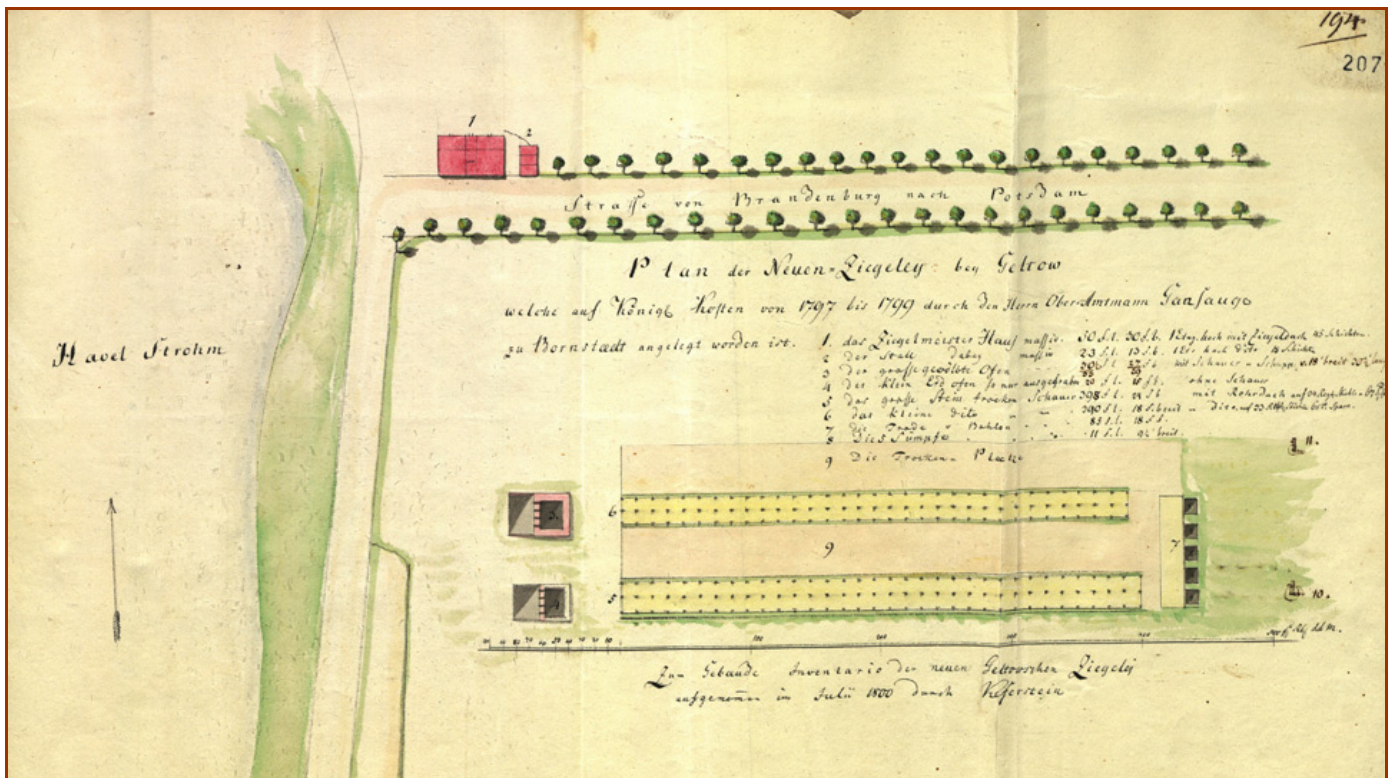 194
207
1
2
Strasse von Brandenburg nach Potsdam
Plan der Neuen-Ziegeley bey Geltow
welche auf Königl Kosten von 1797 bis 1799 durch den Herrn Ober-Amtmann Gansauge
zu Bornstaedt angelegt worden ist.
Havel Strohm
1. das Ziegelmeister Hauss massiv. 50 f.l. 30 f.b. 1 Etag. hoch mit Ziegeldach
2 der Stall dabey massiv 23 f.l. 13 f.b.
3 Der grosse gewölbte Ofen
4 Der klein Erd ofen so nur ausgegraben ohne Schauer
5 das grosse Stein trocken Schauer 398 f.l. 24 f.b. mit Rohrdach
6 das kleine dito 390 f.l. 18 f. breit
7 die 85 f.l. 18 f.b.
8 Die 5 Sümpfe 11 f.l. 9½ breit.
9 Die Trocken Plaetze
11.
3.
6
7
9
4
5
10.
100
200
300
400
Zum Gebaude Inventario der neuen Geltowschen Ziegeley
aufgenomen im Julii 1800 durch Keferstein